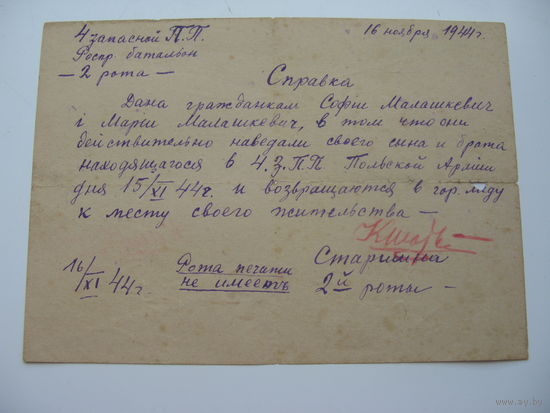 4 запасной П.П.
Роспр. баталъон
— 2 рота —
16 ноября 1944г.
Справка
Дана гражданкам Софіи Малашкевич
і Маріи Малашкевич, в том что они
действительно наведали своего сина и брата
находящагося в 4.З.П.П. Польской Арміи
дня 15/XI 44г. и возвращаются в гор. Лиду
к месту своего жительства —
Старшина
2й роты —
Рота печати
не имеетъ
16/XI 44г.
www.ay.by